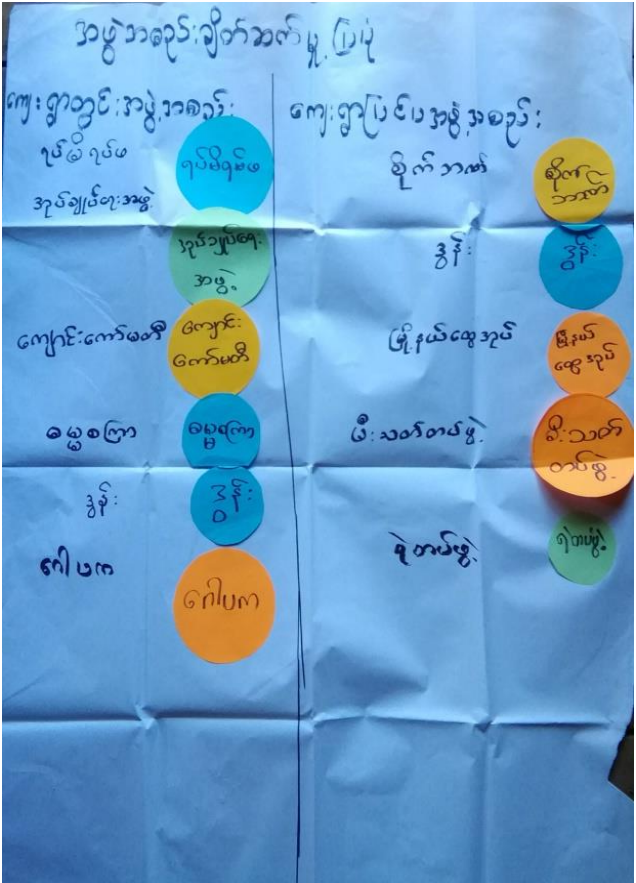 အဖွဲ့အစည်းချိတ်ဆက်မှုပြပုံ
ကျေးရွာတွင်းအဖွဲ့အစည်း
ရပ်မိရပ်ဖ
ရပ်မိရပ်ဖ
အုပ်ချုပ်ရေးအဖွဲ့
အုပ်ချုပ်ရေး
အဖွဲ့
ကျောင်းကော်မတီ
ကျောင်း
ကော်မတီ
ဓမ္မစကြာ
ဓမ္မစကြာ
ဒွန်း
ဒွန်း
ဂေါပက
ဂေါပက
ကျေးရွာပြင်ပအဖွဲ့အစည်း
စိုက်ဘဏ်
စိုက်
ဘဏ်
ဒွန်း
ဒွန်း
မြို့နယ်ထွေအုပ်
မြို့နယ်
ထွေအုပ်
မီးသတ်တပ်ဖွဲ့
မီးသတ်
တပ်ဖွဲ့
ရဲတပ်ဖွဲ့
ရဲတပ်ဖွဲ့